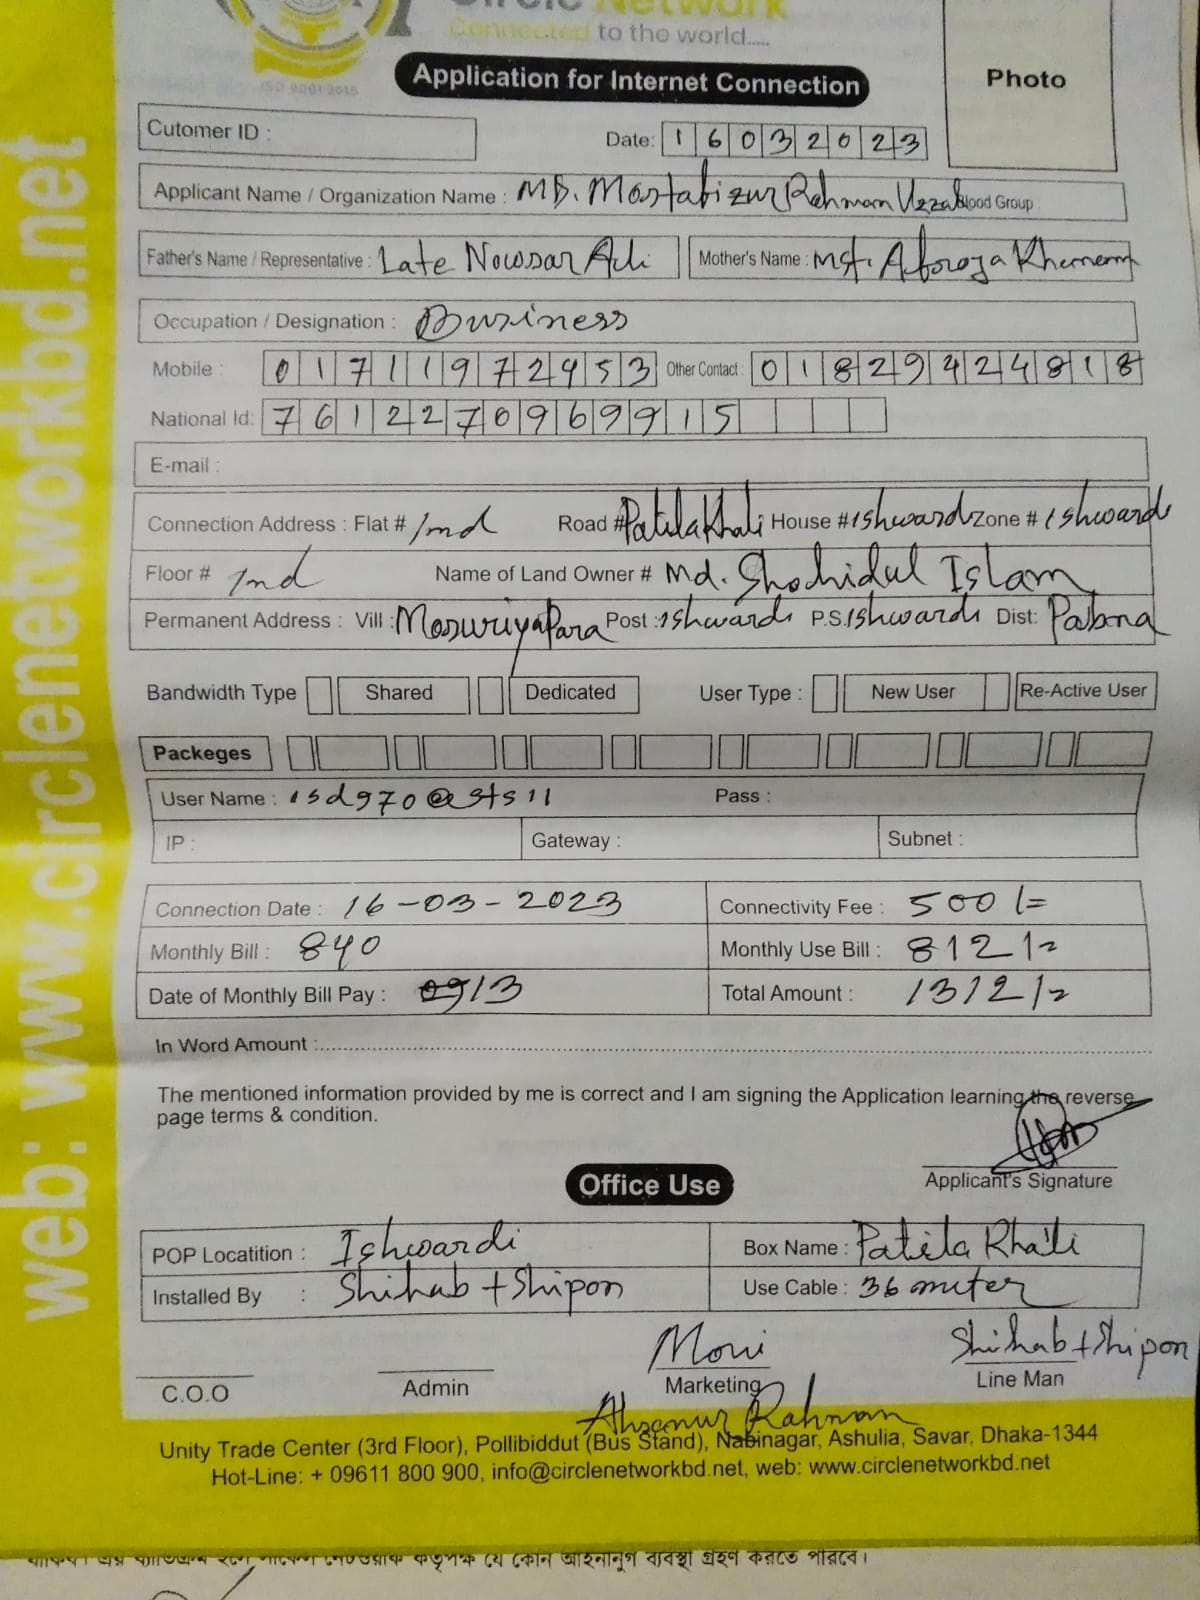 Circle Network
Connected to the world.....
ISO 9001:2015
Application for Internet Connection
Photo
Cutomer ID :
Date: 16032023
Applicant Name / Organization Name : MD. Mostafizur Rahman Uzzal Blood Group
Father's Name / Representative : Late Nowsar Ali Mother's Name : Mst. Afroja Khanam
Occupation / Designation : Business
Mobile : 01711972453 Other Contact : 01829424818
National Id: 7612270969915
E-mail :
Connection Address : Flat # 1nd Road # Patilakhali House # ishwardi Zone # ishwardi
Floor # 1nd Name of Land Owner # Md. Shohidul Islam
Permanent Address : Vill : Mosuriyapara Post : ishwardi P.S. Ishwardi Dist: Pabna
Bandwidth Type Shared Dedicated User Type : New User Re-Active User
Packeges
User Name : isd970@sts11 Pass :
IP : Gateway : Subnet :
Connection Date : 16-03-2023 Connectivity Fee : 500/=
Monthly Bill : 840 Monthly Use Bill : 812/=
Date of Monthly Bill Pay : 13 Total Amount : 1312/=
In Word Amount :
The mentioned information provided by me is correct and I am signing the Application learning the reverse
page terms & condition.
Applicant's Signature
Office Use
POP Locatition : Ishwardi Box Name : Patila Khali
Installed By : Shihab + Shipon Use Cable : 36 meter
Moni Shihab + Shipon
C.O.O Admin Marketing Line Man
Ahsanur Rahman
Unity Trade Center (3rd Floor), Pollibiddut (Bus Stand), Nabinagar, Ashulia, Savar, Dhaka-1344
Hot-Line: + 09611 800 900, info@circlenetworkbd.net, web: www.circlenetworkbd.net
web: www.circlenetworkbd.net
কর্তৃপক্ষ যে কোন আইনানুগ ব্যবস্থা গ্রহণ করতে পারবে।